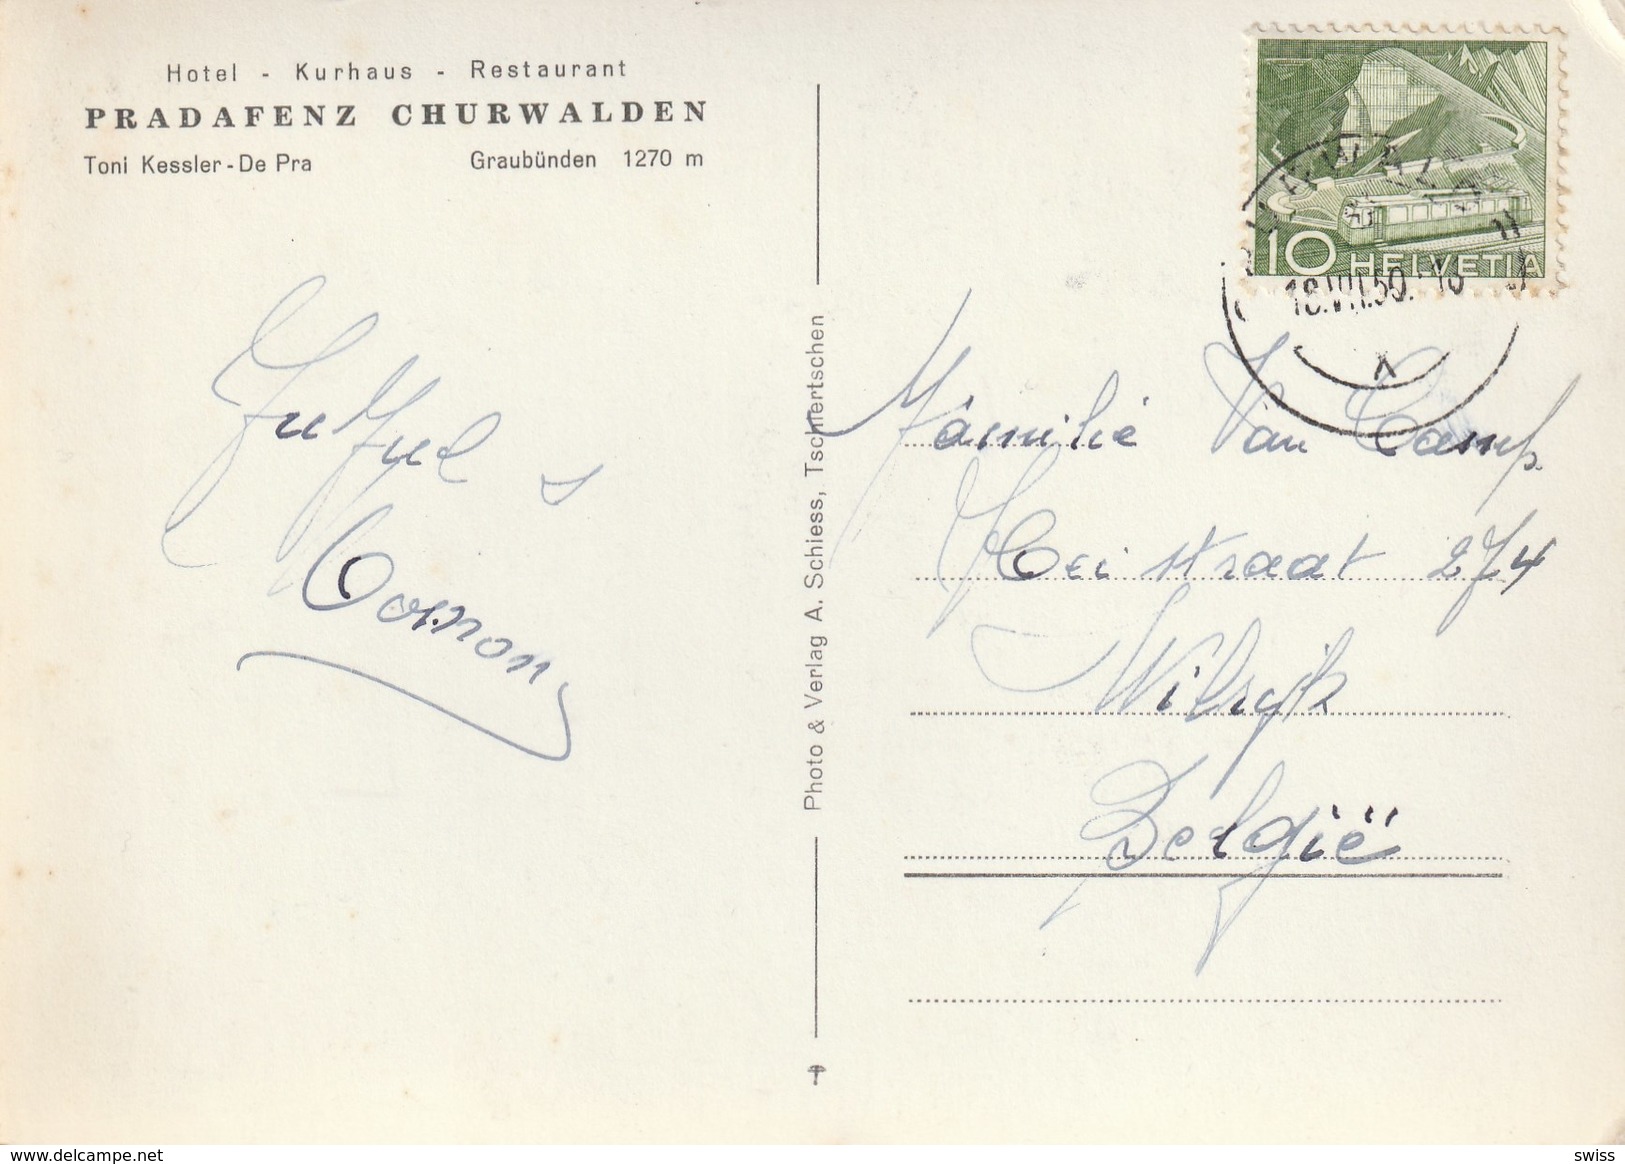 Hotel - Kurhaus - Restaurant
PRADAFENZ CHURWALDEN
Toni Kessler-De Pra Graubünden 1270 m
Photo & Verlag A. Schiess, Tschiertschen
10 HELVETIA
18.VII.50.
Familie Van Camp
Heistraat 274
Wilrijk
België
www.delcampe.net
swiss